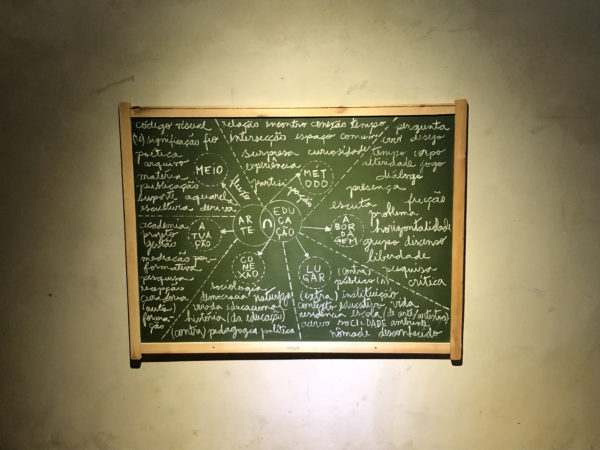 código visual
(re)significação fio
poética
arquivo
matéria
publicação
suporte aquarela
escultura deriva
MEIO
texto
relação encontro conexão tempo
intersecção espaço comum
surpresa curiosidade
experiência
partici
pação
MET
ODO
pergunta
erro desejo
tempo corpo
alteridade jogo
diálogo
presença
escuta fricção
problema
horizontalidade
grupo discenso
liberdade
pesquisa
crítica
A
BOR
DA
GEM
AR
TE
∩
EDU
CA
ÇÃO
academia
projeto
gestão
mediação per-
formativa
pesquisa
recepção
curadoria
(auto)
forma
ção
A
TUA
ÇÃO
CO
NE
XÃO
sociologia
democracia natureza
escola educacional
história (da educação)
(contra) pedagogia política
LU
GAR
(contra)
público(s)
(extra) instituição
contexto educativo vida
residência escola (de arte/artistas)
acervo soCIeDADE ambiente
nômade desconhecido